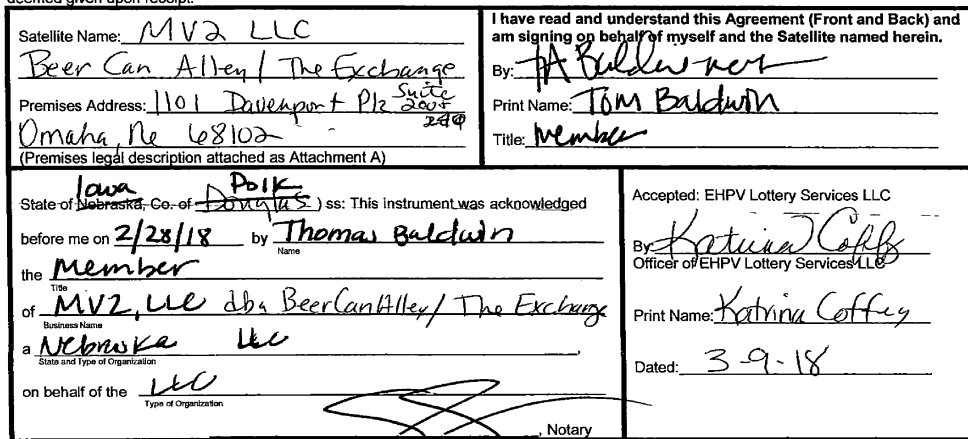 deemed given upon receipt.
Satellite Name: MV2 LLC
Beer Can Alley / The Exchange
Premises Address: 1101 Davenport Plz Suite 200
Omaha, Ne 68102
(Premises legal description attached as Attachment A)
I have read and understand this Agreement (Front and Back) and
am signing on behalf of myself and the Satellite named herein.
By:
Print Name: Tom Baldwin
Title: Member
Iowa Polk
State of Nebraska, Co. of Douglas ) ss: This instrument was acknowledged
before me on 2/28/18 by Thomas Baldwin
Name
the Member
Title
of MV2, LLC dba BeerCanAlley/ The Exchange
Business Name
a Nebraska LLC
State and Type of Organization
on behalf of the LLC
Type of Organization
, Notary
Accepted: EHPV Lottery Services LLC
By: Katrina J Coffey
Officer of EHPV Lottery Services LLC
Print Name: Katrina Coffey
Dated: 3-9-18